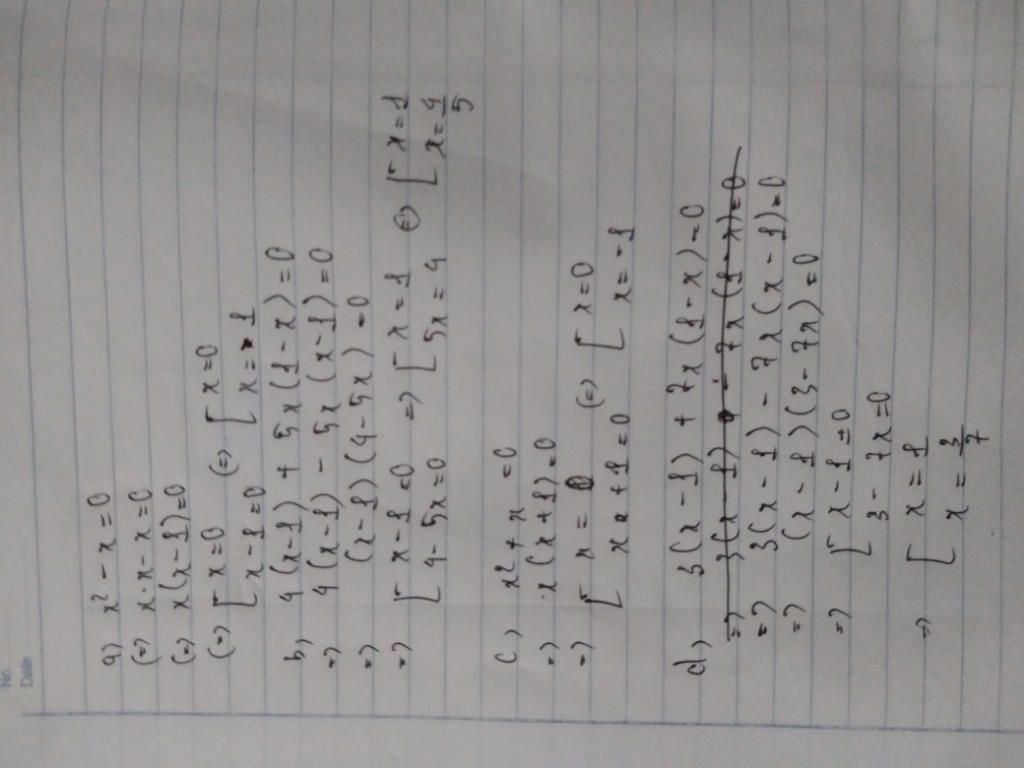 No.
Date
a) x² - x = 0
(=) x.x - x = 0
(=) x(x-1) = 0
(=) [ x = 0 (=) [ x = 0
[ x - 1 = 0 [ x = 1
b) 4(x-1) + 5x(1-x) = 0
=) 4(x-1) - 5x(x-1) = 0
=) (x-1)(4-5x) = 0
=) [ x - 1 = 0 =) [ x = 1 (=) [ x = 1
[ 4 - 5x = 0 [ 5x = 4 [ x = 4/5
c) x² + x = 0
=) x(x+1) = 0
=) [ x = 0 (=) [ x = 0
[ x + 1 = 0 [ x = -1
d) 3(x-1) + 7x(1-x) = 0
=) 3(x-1) - 7x(1-x) = 0
=) 3(x-1) - 7x(x-1) = 0
=) (x-1)(3-7x) = 0
=) [ x - 1 = 0
[ 3 - 7x = 0
=) [ x = 1
[ x = 3/7